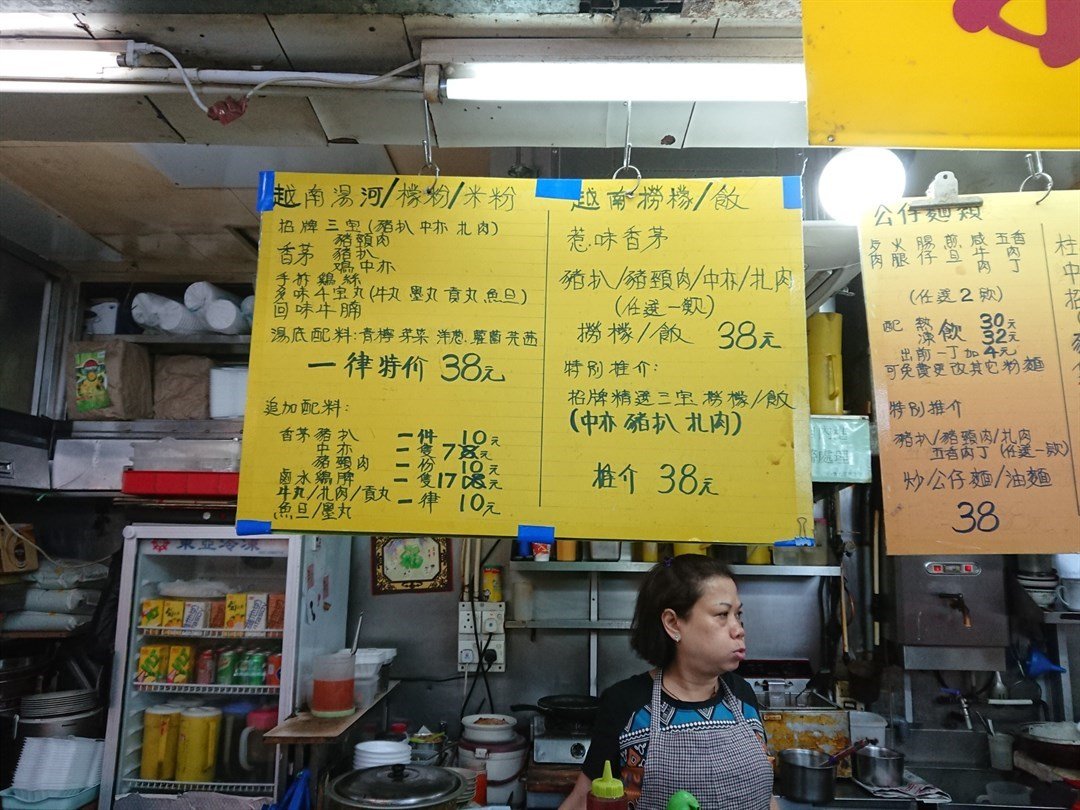 越南湯河/檬粉/米粉
招牌三宝(豬扒中亦扎肉)
豬頸肉
香茅 豬扒
鷄中亦
手撕鷄絲
多味牛宝丸(牛丸墨丸貢丸魚旦)
回味牛腩
湯底配料:青檸芽菜洋葱蘿蔔芫茜
一律特价 38元
追加配料:
香茅豬扒 一件 10元
中亦 一隻 7元
豬頸肉 一份 10元
鹵水鷄脾 一隻 17元
牛丸/扎肉/貢丸
魚旦/墨丸 一律 10元
越南撈檬/飯
惹味香茅
豬扒/豬頸肉/中亦/扎肉
(任選一欵)
撈檬/飯 38元
特別推介:
招牌精選三宝撈檬/飯
(中亦豬扒扎肉)
推介 38元
公仔麵類
火腿 腸仔 煎旦 咸牛肉 五香肉丁
(任選2欵)
配 熱飲 30元
凍飲 32元
出前一丁加4元
可免費更改其它粉麵
特別推介
豬扒/豬頸肉/扎肉
五香肉丁(任選一欵)
炒/公仔麵/油麵
38